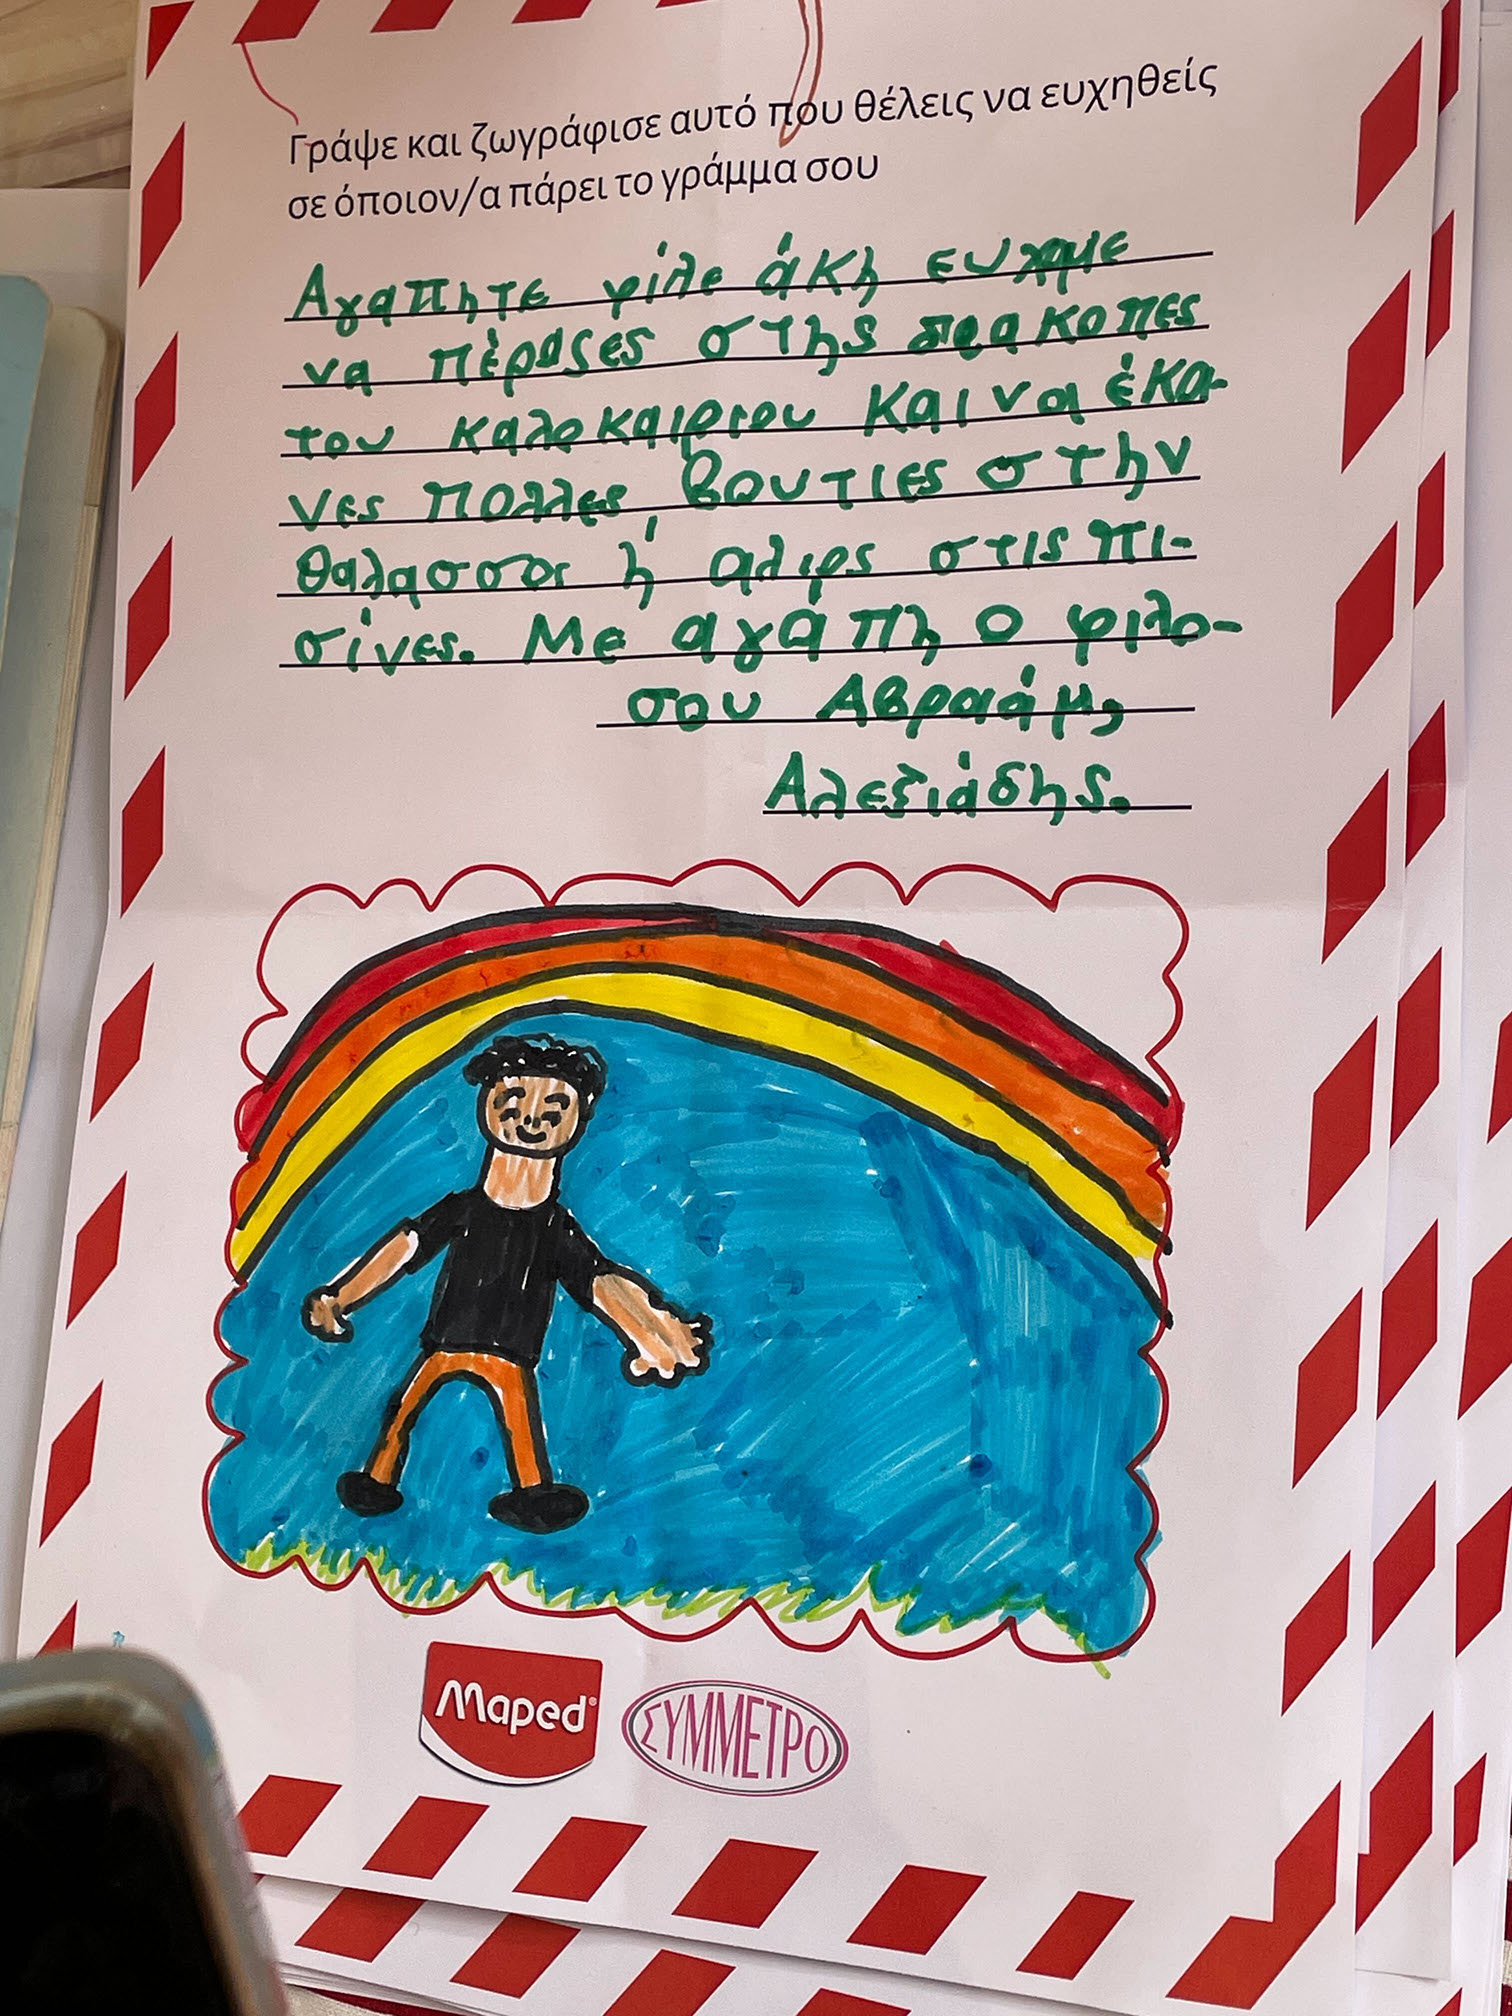 Γράψε και ζωγράφισε αυτό που θέλεις να ευχηθείς
σε όποιον/α πάρει το γράμμα σου
Αγαπητε φίλε άκη ευχομε
να πέρασες στης διακοπες
του καλοκαιριου και να έκα-
νες πολλες βουτιες στην
θαλασσα ή αλιως στις πι-
σίνες. Με αγάπη ο φιλο-
σου Αβραάμ,
Αλεξιάδης.
Maped
ΣΥΜΜΕΤΡΟ